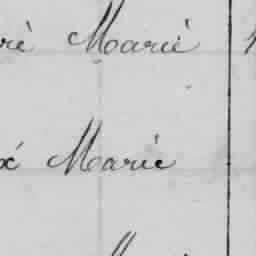 rè Marie
Marie